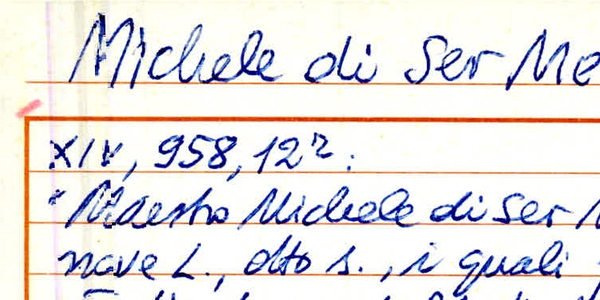 Michele di Ser Me
XIV, 958, 12r:
"Maestro Michele di Ser M
nove L., otto s., i quali